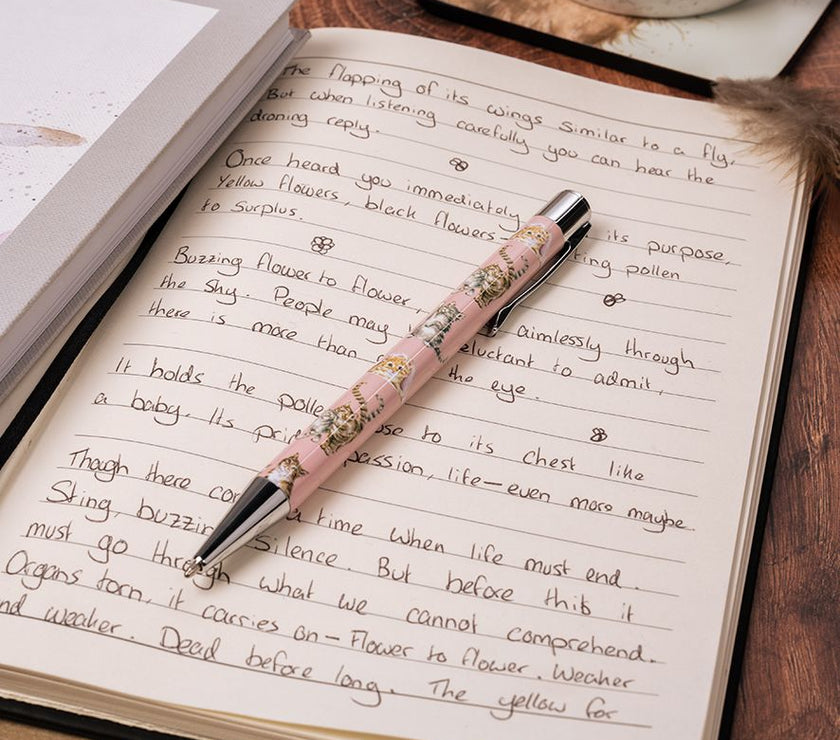 The flapping of its wings similar to a fly.
But when listening carefully you can hear the
droning reply.
Once heard you immediately its purpose,
Yellow flowers, black flowers ting pollen
to surplus.
Buzzing flower to flower, aimlessly through
the sky. People may eluctant to admit,
there is more than the eye.
It holds the polle se to its chest like
a baby. Its pri passion, life-even more maybe.
Though there co a time when life must end.
Sting, buzzin Silence. But before this it
must go through what we cannot comprehend.
Organs torn, it carries on-Flower to flower. Weaker
nd weaker. Dead before long. The yellow for